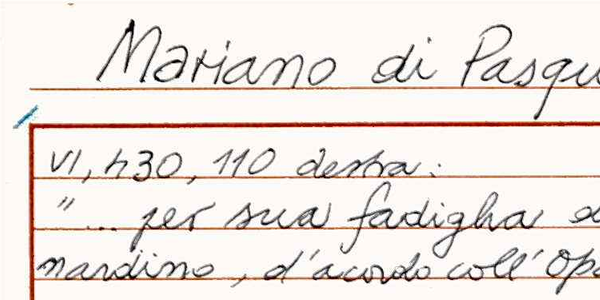 Mariano di Pasqu
VI, 430, 110 destra:
"... per sua fadigha e
nardino, d'acordo coll' Opa